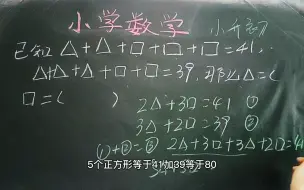 小学数学
小升初
已知△+△+□+□+□=41,
△+△+△+□+□=39,那么△=(
□=(      )
2△+3□=41 ①
3△+2□=39 ②
①+②=③ 2△+3□+3△+2□=41
5个正方形等于41加39等于80